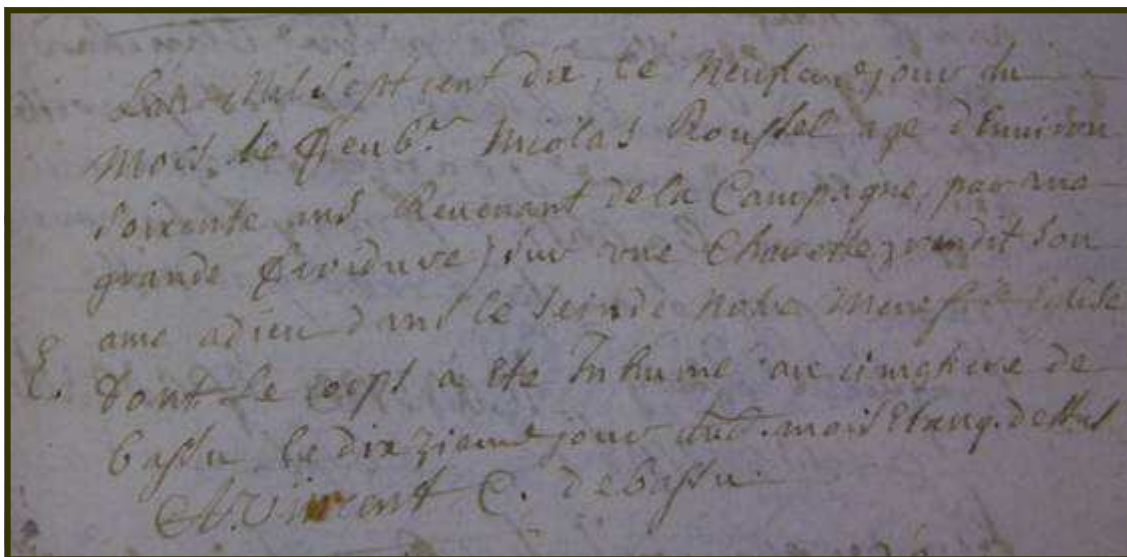 Lan Mil sept cent dix, le Neufiem jour du
Mois de Nicolas Roussel age d'Environ
soixente ans Revenant de la Campagne, par une
grande froidure, sur une Charette, rendit son
ame adieu dans le sein de Notre Mere Ste Eglise
E. dont le corps a ete Inhumé au cimetiere de
bassu, le dixzieme jour dud. mois Et an q. dessus
Vincent C. de bassu.